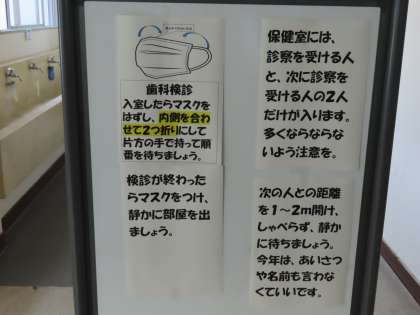 歯科検診
入室したらマスクを
はずし、内側を合わ
せて2つ折りにして
片方の手で持って順
番を待ちましょう。
検診が終わった
らマスクをつけ、
静かに部屋を出
ましょう。
保健室には、
診察を受ける人
と、次に診察を
受ける人の2人
だけが入ります。
多くならならな
いよう注意を。
次の人との距離
を1～2m開け、
しゃべらず、静か
に待ちましょう。
今年は、あいさつ
や名前も言わな
くていいです。